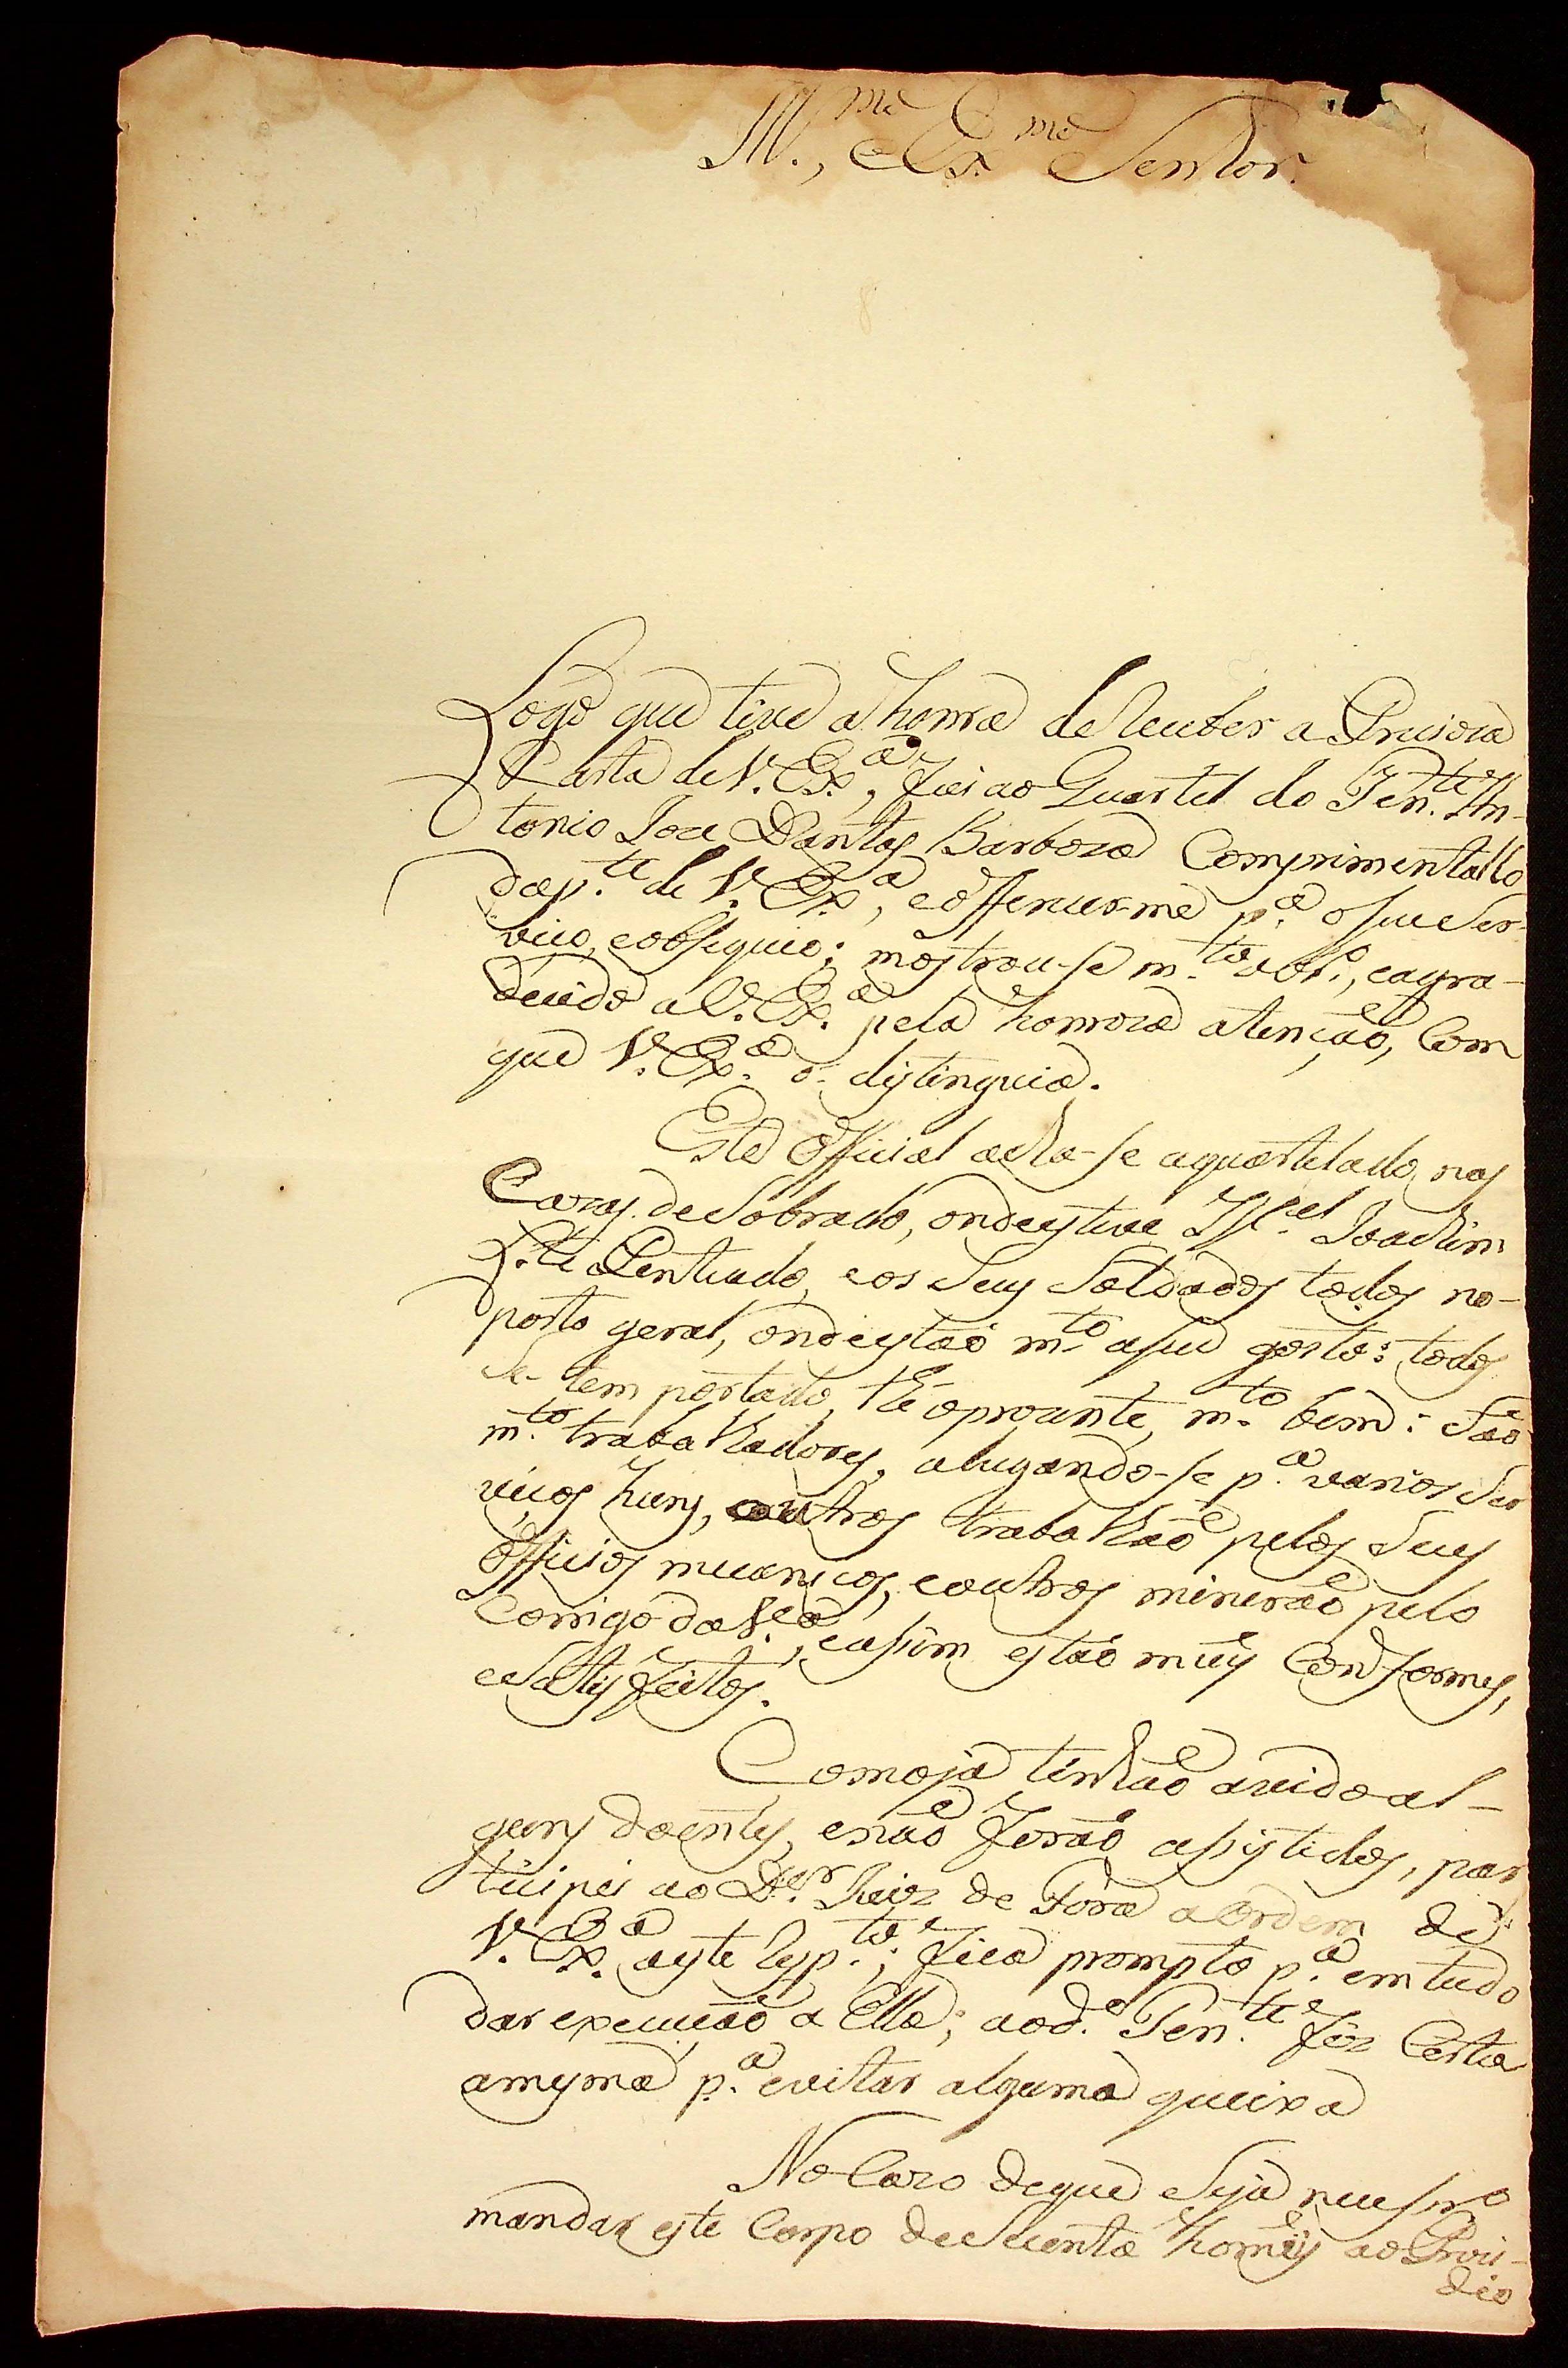 Ill.mo, e Ex.mo Senhor.
Logo que tive a honra de receber a Precioza
Carta de V. Ex.a, fui ao Quartel do Ten.te An-
tonio Joze Dantas Barboza Comprimentallo
da p.te de V. Ex.a, e offerecer-me p.a o seu Ser-
viço, e obsequio; mostrou-se m.to obr.o, e agra-
decido a V. Ex.a pela honroza atenção, Com
que V. Ex.a o distinguia.
Este Official acha-se aquartelado nas
Cazas de Sobrado, onde esteve Joachim
Penteado, e os Seus Soldados todos no
porto geral, onde estaõ m.to a seu gosto: todos
se tem portado, thé o prezente, m.to bem: Saõ
m.to trabalhadores, alugando-se p.a varios Ser
viços huns, outros trabalhaõ pelos Seus
Officios mecanicos, e outros mineraõ pelo
Corrigo da V.a, e assim estaõ muy Conformes,
e Satisfeitos.
Como ja tinhaõ avido al-
guns doentes, e naõ foraõ assistidos, par
ticipei ao D.or Juiz de Fora a ordem de
V. Ex.a a este resp.to; fica prompto p.a em tudo
dar execuçaõ a Ella; ao d.o Ten.te fiz Certa
a mesma p.a evitar alguma queixa
No Cazo de que Seja necessr.o
mandar este Corpo de Secenta homẽs ao Prezi-
dio